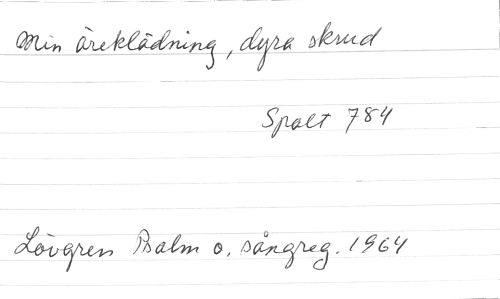 Min äreklädning, dyra skrud
Spalt 784
Lövgren Psalm o. sångreg. 1964